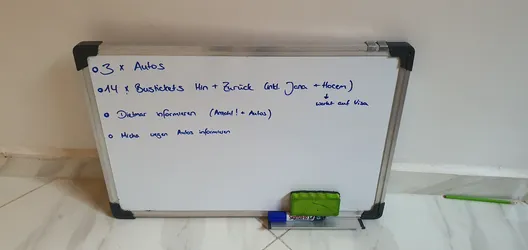 3 x Autos
14 x Bustickets Hin + Zurück (inkl. Jana + Hazem)
↓
wartet auf Visa
Dietmar informieren (Anzahl! + Autos)
Micha wegen Autos informieren